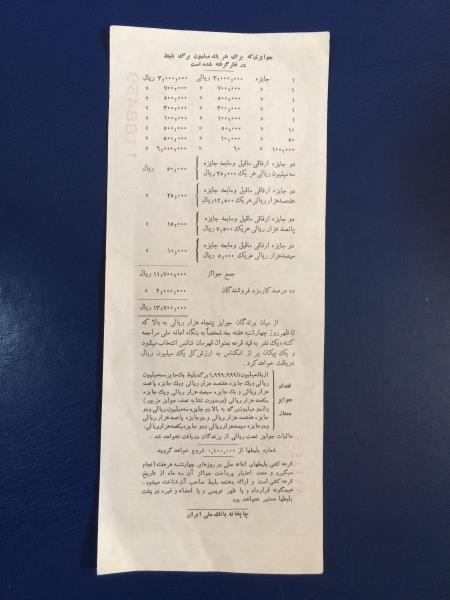 جوایزی که برای هر یک میلیون برگ بلیط
در نظر گرفته شده است
۱ جایزه ۳,۰۰۰,۰۰۰ ریالی ۳,۰۰۰,۰۰۰ ریال
۱ » ۷۰۰,۰۰۰ » ۷۰۰,۰۰۰ »
۱ » ۵۰۰,۰۰۰ » ۵۰۰,۰۰۰ »
۱ » ۳۰۰,۰۰۰ » ۳۰۰,۰۰۰ »
۱ » ۱۰۰,۰۰۰ » ۱۰۰,۰۰۰ »
۱۰ » ۵۰,۰۰۰ » ۵۰۰,۰۰۰ »
۵۰ » ۱۰,۰۰۰ » ۵۰۰,۰۰۰ »
۱۰۰,۰۰۰ » ۶۰ » ۶,۰۰۰,۰۰۰ »
دو جایزه ارفاقی ماقبل و مابعد جایزه
سه میلیون ریالی هر یک ۲۵,۰۰۰ ریال ۵۰,۰۰۰ ریال
دو جایزه ارفاقی ماقبل و مابعد جایزه
هفتصد هزار ریالی هر یک ۱۲,۵۰۰ ریال ۲۵,۰۰۰ »
دو جایزه ارفاقی ماقبل و مابعد جایزه
پانصد هزار ریالی هر یک ۷,۵۰۰ ریال ۱۵,۰۰۰ »
دو جایزه ارفاقی ماقبل و مابعد جایزه
سیصد هزار ریالی هر یک ۵,۰۰۰ ریال ۱۰,۰۰۰ »
جمع جوائز ۱۱,۷۰۰,۰۰۰ ریال
ده درصد کارمزد فروشندگان ۲,۰۰۰,۰۰۰ »
۱۳,۷۰۰,۰۰۰ ریال
از میان برندگان جوایز پنجاه هزار ریالی به بالا که
تا ظهر روز چهارشنبه هفته بعد شخصاً به بنگاه اعانه ملی مراجعه
کنند، یک نفر به قید قرعه بعنوان قهرمان شانس انتخاب میشود
و یک پیکان پر از اسکناس به ارزش کل یک میلیون ریال
دریافت خواهد کرد.
تعداد
جوایز
ممتاز
از یک میلیون تا ۱,۹۹۹,۹۹۹ برگ بلیط یک جایزه سه میلیون
ریالی و یک جایزه هفتصد هزار ریالی و یک جایزه پانصد
هزار ریالی و یک جایزه سیصد هزار ریالی و یک جایزه
یکصد هزار ریالی
و از دو میلیون برگ به بالا دو جایزه سه میلیون ریالی و دو
جایزه هفتصد هزار ریالی و دو جایزه پانصد هزار ریالی
و دو جایزه سیصد هزار ریالی و دو جایزه یکصد هزار ریالی.
مالیات جوایز نصت ریالی از برندگان دریافت نخواهد شد.
شماره بلیطها از ۰,۱۰۰,۰۰۰ شروع خواهد گردید
قرعه کشی بلیطهای اعانه ملی در روزهای چهارشنبه هر هفته انجام
میگیرد و مدت اعتبار پرداخت جوائز آن سه ماه از تاریخ
قرعه کشی است و ارائه دهنده بلیط صاحب آن شناخته میشود.
هیچگونه قرارداد و یا ظهر نویسی و یا امضاء و غیره در پشت
بلیطها معتبر نخواهد بود
چاپخانه بانک ملی ایران